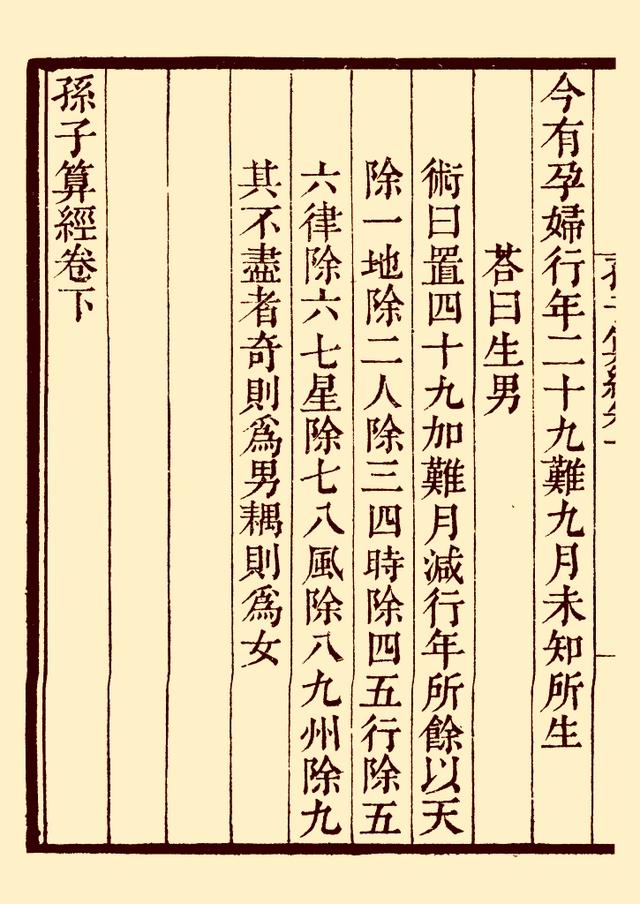 今有孕婦行年二十九難九月未知所生
荅曰生男
術曰置四十九加難月減行年所餘以天
除一地除二人除三四時除四五行除五
六律除六七星除七八風除八九州除九
其不盡者奇則爲男耦則爲女
孫子算經卷下